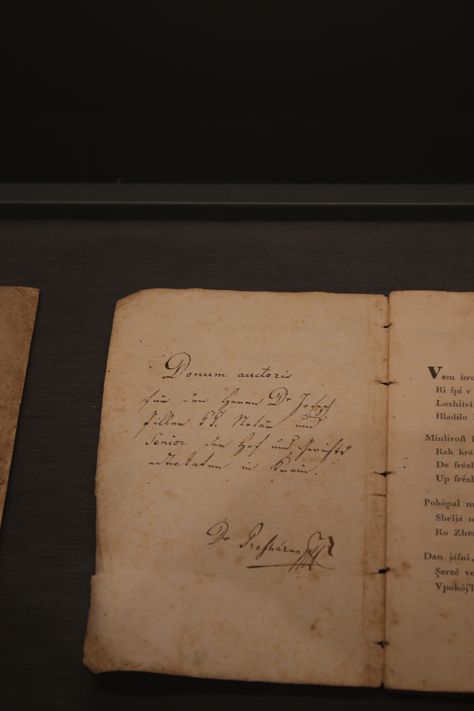 Donum auctoris
für den Herrn Dr Joseph
Notär und
Senior der Hof und Gerichts
advokaten in Krain.
Dr Preshérn
Vam isro
Ki ſpí v
Loshitvi
Hladilo
Minlivoſt
Kak krá
De frésh
Up frésh
Pokópal m
Sheljá n
Ko Zhe
Dan jáſni,
Ṡerzé ve
Vpokój'l